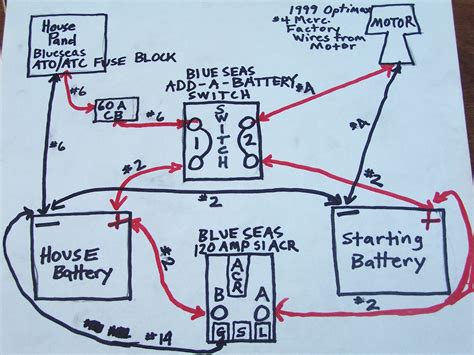 House
Panel
Blueseas
ATO/ATC FUSE BLOCK
#6
60A
CB
#6
#6
BLUE SEAS
ADD-A-BATTERY
SWITCH
SWITCH
1
2
1999 Optimax
#4 Merc.
Factory
Wires from
Motor
MOTOR
#4
#4
#2
#2
#2
#2
#2
HOUSE
Battery
BLUE SEAS
120 AMP SI ACR
ACR
B
A
G
S
L
Starting
Battery
#2
#14